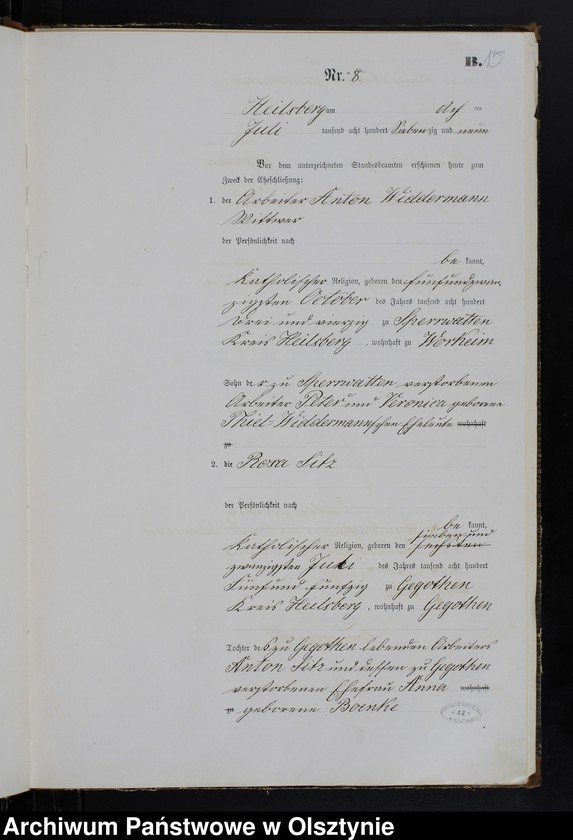 B. 15
Nr. 8
Heilsberg am acht ten
Juli tausend acht hundert Sieben zig und neun
Vor dem unterzeichneten Standesbeamten erschienen heute zum
Zweck der Eheschließung:
1. der Arbeiter Anton Widdermann
Wittwer
der Persönlichkeit nach
be kannt,
katholischer Religion, geboren den fünfundzwan,
zigsten October des Jahres tausend acht hundert
drei und vierzig zu Sperrwatten
Kreis Heilsberg, wohnhaft zu Workeim
Sohn der zu Sperrwatten verstorbenen
Arbeiter Peter und Veronica geborene
Thiel-Widdermannschen Eheleute wohnhaft
zu
2. die Rosa Sitz
der Persönlichkeit nach
be kannt,
sieben und
katholischer Religion, geboren den sechsten
zwanzigsten Juli des Jahres tausend acht hundert
Fünf und fünfzig zu Gegothen
Kreis Heilsberg, wohnhaft zu Gegothen
Tochter des zu Gegothen lebenden Arbeiters
Anton Sitz und dessen zu Gegothen
verstorbenen Ehefrau Anna wohnhaft
zu geborene Boenke
42
Archiwum Państwowe w Olsztynie